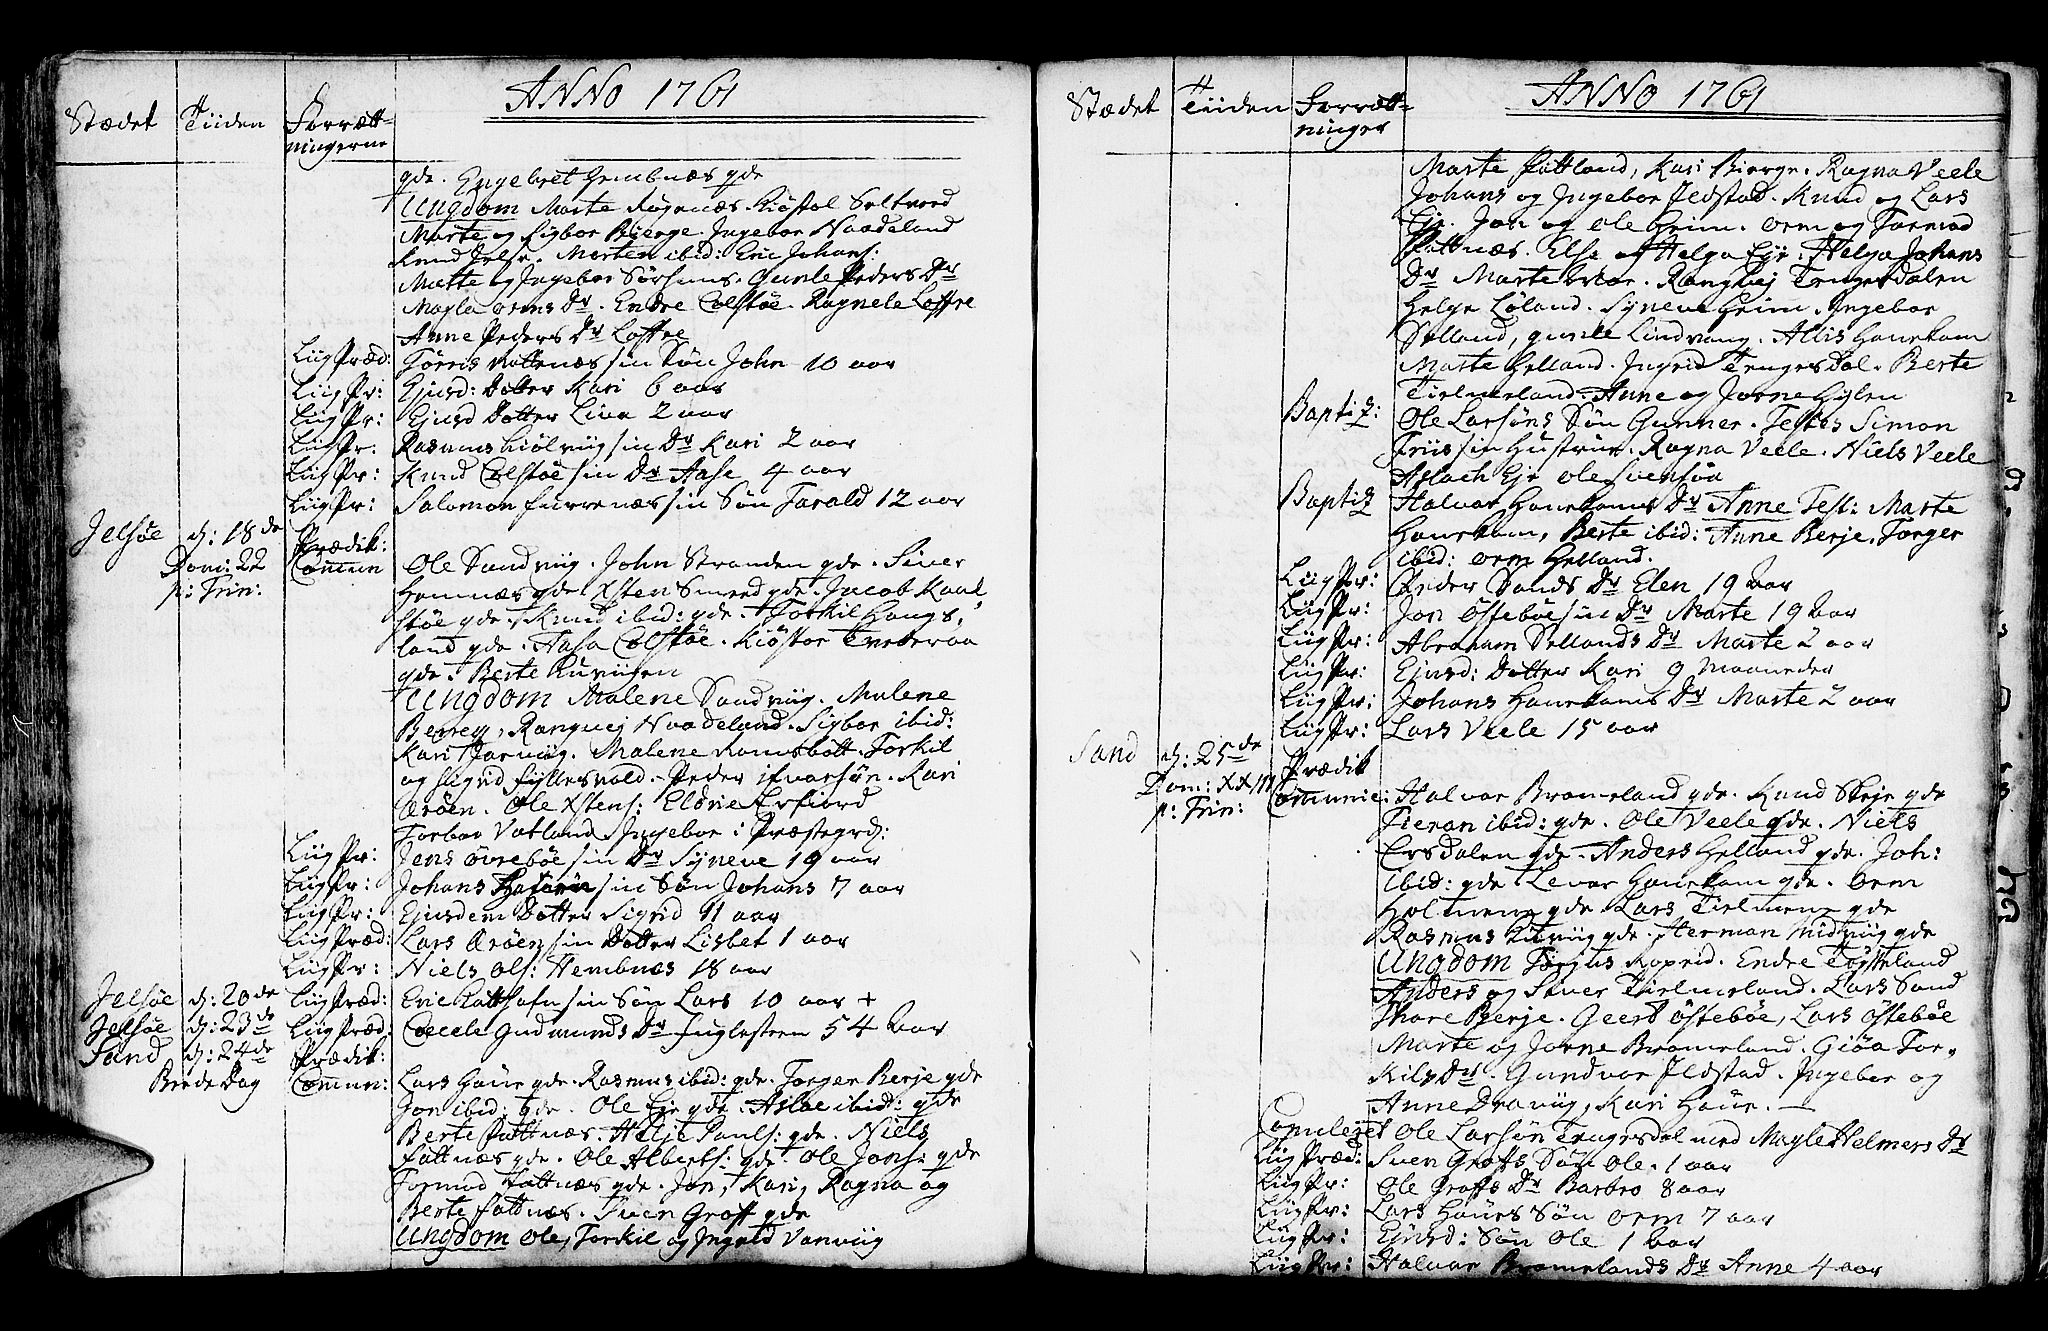 ANNO 1761
Stædet Tiiden Forrætt-
ningerne
gde. Engebret Hembnæs gde
Ungdom Marte Røgenæs. Kiøstol Seltveed
Marte og Sigbor Bierge. Ingebor Naadeland
Knud Jelse. Morten ibid: Eric Johans:
Marte og Ingebor Sørhuus. Gunle Peders Dr
Magla Orms Dr. Endre Colstøe. Ragnele Loffre
Anne Peders Dr Loffre
LiigPræd: Tørris Nattenæs sin Søn John 10 aar
LiigPr: Ejusd: Dotter Kari 6 aar
LiigPr: Ejusd Dotter Liva 2 aar
LiigPr: Rasmus Kiølviig sin Dr Kari 2 aar
LiigPr: Knud Colstøe sin Dr Aase 4 aar
LiigPr: Salomon Furrenæs sin Søn Tarald 12 aar
Jelsøe d: 18de Prædik:
Dom: 22 Comun Ole Sandviig. John Stranden gde. Siver
p: Trin: Hamnæs gde Xsten Smeed gde. Jacob Kaal
støe gde. Knud ibid: gde. Torkil Haugs,
land gde. Aasa Colstøe. Kiøstor Tvederaa
gde. Berte Ruviigen
Ungdom Malene Sandviig. Malene
Berrey, Rangvej Naadeland. Sigbor ibid:
Kari Jarviig. Malene Ramsbott. Torkil
og Sigrid Fyllesvold. Peder Ifvarsøn. Kari
Ærøen. Ole Xstens: Eldrie Erfiord
Torbor Vatland Ingebor i Præstegrd:
LiigPr: Jens Øvrebøe sin Dr Syneve 19 aar
LiigPr: Johans sin Søn Johans 7 aar
LiigPr: Ejusdem Dotter Sigrid 11 aar
LiigPræd: Lars Ærøen sin Dotter Lisbet 1 aar
LiigPr: Niels Ols: Hembnæs 18 aar
Jelsøe d: 20de LiigPræd: Eric sin Søn Lars 10 aar +
Jelsøe d: 23de LiigPræd: Cecele Gudmunds Dr Fuglesteen 54 aar
Sand d: 24de Prædik:
BedeDag Comun: Lars Haur gde. Rasmus ibid: gde. Torger Berje gde
Jon ibid: gde. Ole Eje gde. Aslac ibid: gde
Berte Fattnæs. Helje Pouls: gde. Niels
Fattnæs gde. Ole Alberts: gde. Ole Jons: gde
Tormod Fattnæs gde. Jon, Kari, Ragna og
Berte Fattnæs. Sven Groff gde
Ungdom Ole, Torkil og Ingrid Vanviig
ANNO 1761
Stædet Tiiden Forrætt-
ninger
Marte Fattland, Kari Bierge. Ragna Veele
Johans og Ingebor Ilstad. Knud og Lars
Eje. Jon og Ole Heim. Orm og Tormod
Fattnæs. Else og Helga Eje. Helga Johans
Dr Marte Moe. Rangvej Tengesdalen
Helge Løland. Syneve Heim Ingebor
Selland, gunle Lindvang. Allis Hauekam
Marte Helland. Ingrid Tengesdal. Berte
Tielmeland. Anne og Jorne Hylen
Baptiz: Ole Larsøns Søn Gunner. Testes Simon
Friis sin Hustrue. Ragna Veele. Niels Veele
Aslach Eje Ole Svensøn
Baptiz Halvar Hauekams Dr Anne Test: Marte
Hauekam, Berte ibid: Anne Berje, Torger
ibid: Orm Helland.
LiigPr: Peder Sands Dr Elen 19 aar
LiigPr: Jon Østebøe sin Dr Marte 19 aar
LiigPr: Abraham Sellands Dr Marte 2 aar
LiigPr: Ejusd: Dotter Kari 9 Maaneder
LiigPr: Johans Hauekams Dr Marte 2 aar
LiigPr: Lars Veele 15 aar
Sand d: 25de Prædik
Dom: XXIII Comunic: Halvar Brameland gde. Knud Skeje gde
p: Trin: Tieran ibid: gde. Ole Veele gde. Niels
Ersdalen gde. Anders Helland gde. Joh:
ibid: gde Levar Hauekam gde. Orm
Holmen gde Lars Tielmen gde
Rasmus Litviig gde. Herman Midviig gde
Ungdom Torjus Roprid. Endre Tøtteland
Anders og Siver Tielmeland. Lars Sand
Thore Berje. Geert Østebøe, Lars Østebøe
Marte og Jorne Brameland. Giøa Tor,
kils Dr. Gundvor Ilstad. Ingebor og
Anne Draviig, Kari Haur.
Copuleret Ole Larsøn Tengesdal med Magle Helmers Dr
LiigPræd: Sven Groffs Søn Ole. 1 aar
LiigPr: Ole Groffs Dr Barbro 8 aar
LiigPr: Lars Haues Søn Orm 7 aar
LiigPr: Ejusd: Søn Ole 1 aar
LiigPr: Halvar Bramelands Dr Anne 4 aar